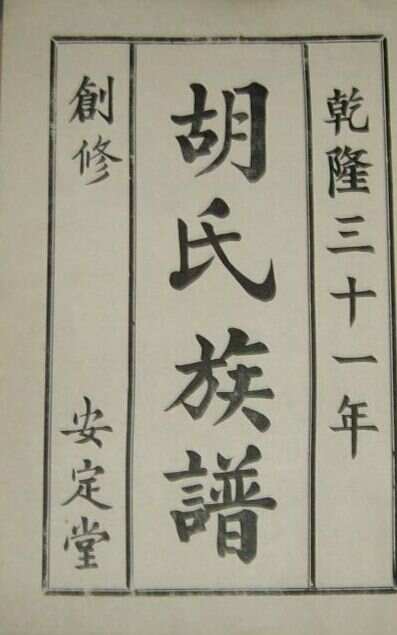 乾隆三十一年
胡氏族譜
創修
安定堂